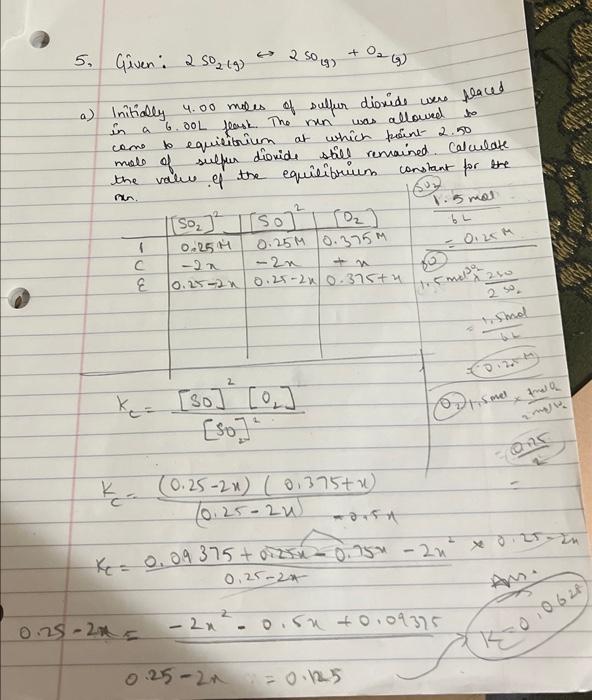 5. Given: 2 SO₂(g) ↔ 2 SO(g) + O₂(g)
a) Initially 4.00 moles of sulfur dioxide were placed
in a 6.00L flask. The rxn was allowed to
come to equilibrium at which point 2.50
mole of sulfur dioxide still remained. Calculate
the value of the equilibrium constant for the
rxn.
[SO₂]² [SO]² [O₂]
I 0.25M 0.25M 0.375M
C -2x -2x +x
E 0.25-2x 0.25-2x 0.375+x
SO₂
1.5 mol
6L
= 0.25M
SO
1.5 mol SO₂ × 2SO
2SO₂
= 1.5mol
6L
= 0.25M
O₂ 1.5mol × 1mol O₂
2mol
= 0.25
2
=
Kc = [SO]² [O₂]
[SO₂]²
Kc = (0.25-2x) (0.375+x)
(0.25-2x)
-0.5x
Kc = 0.09375 + 0.25x - 0.75x - 2x² × 0.25-2x
0.25-2x
Ans.
K = 0.0625
0.25-2x = -2x² - 0.5x + 0.09375
0.25-2x = 0.125